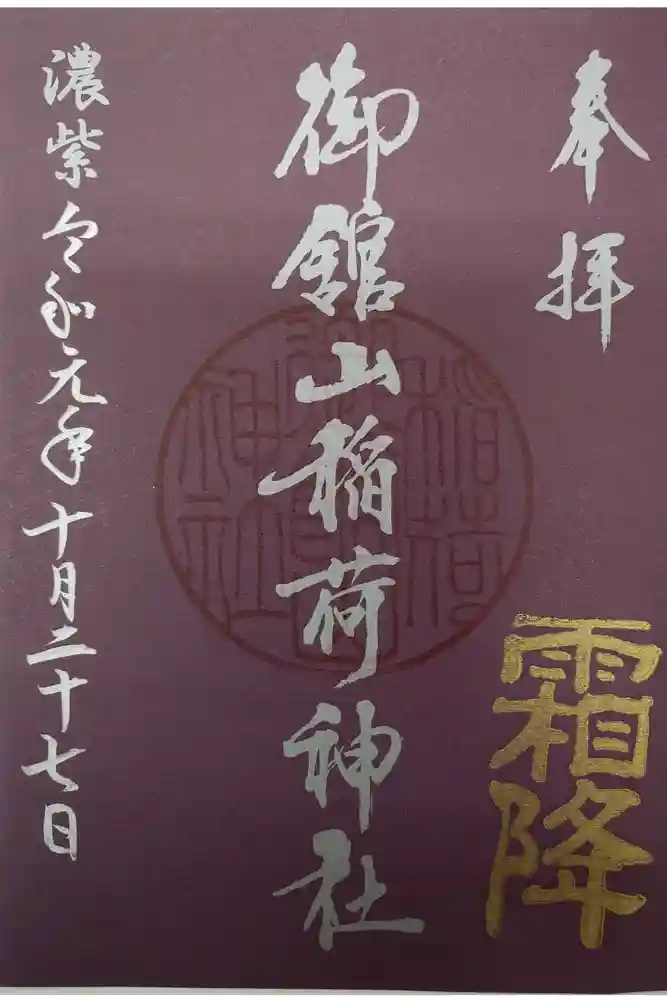 奉拝
霜降
御館山稲荷神社
濃紫 令和元年十月二十七日